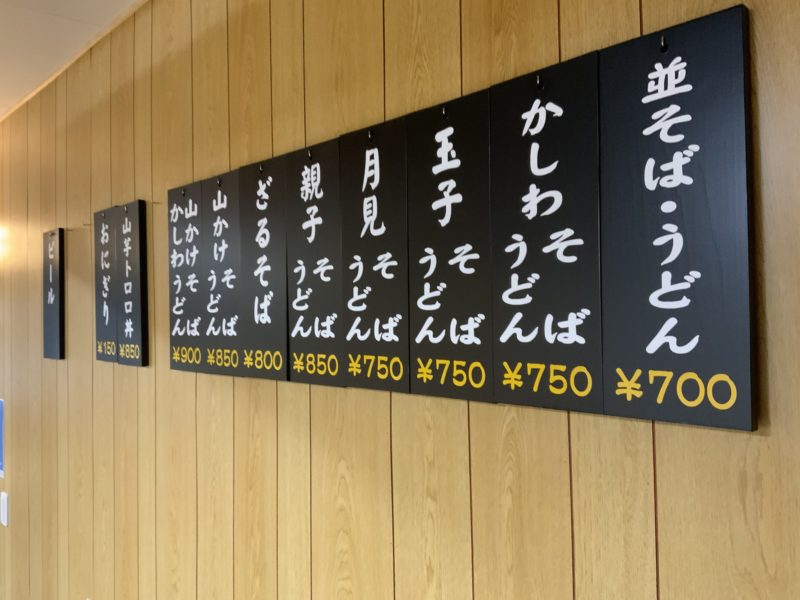 並そば・うどん
¥700
かしわ
そば
うどん
¥750
玉子
そば
うどん
¥750
月見
そば
うどん
¥750
親子
そば
うどん
¥850
ざるそば
¥800
山かけ
そば
うどん
¥850
山かけそば
かしわうどん
¥900
山芋トロロ丼
¥850
おにぎり
¥150
ビール